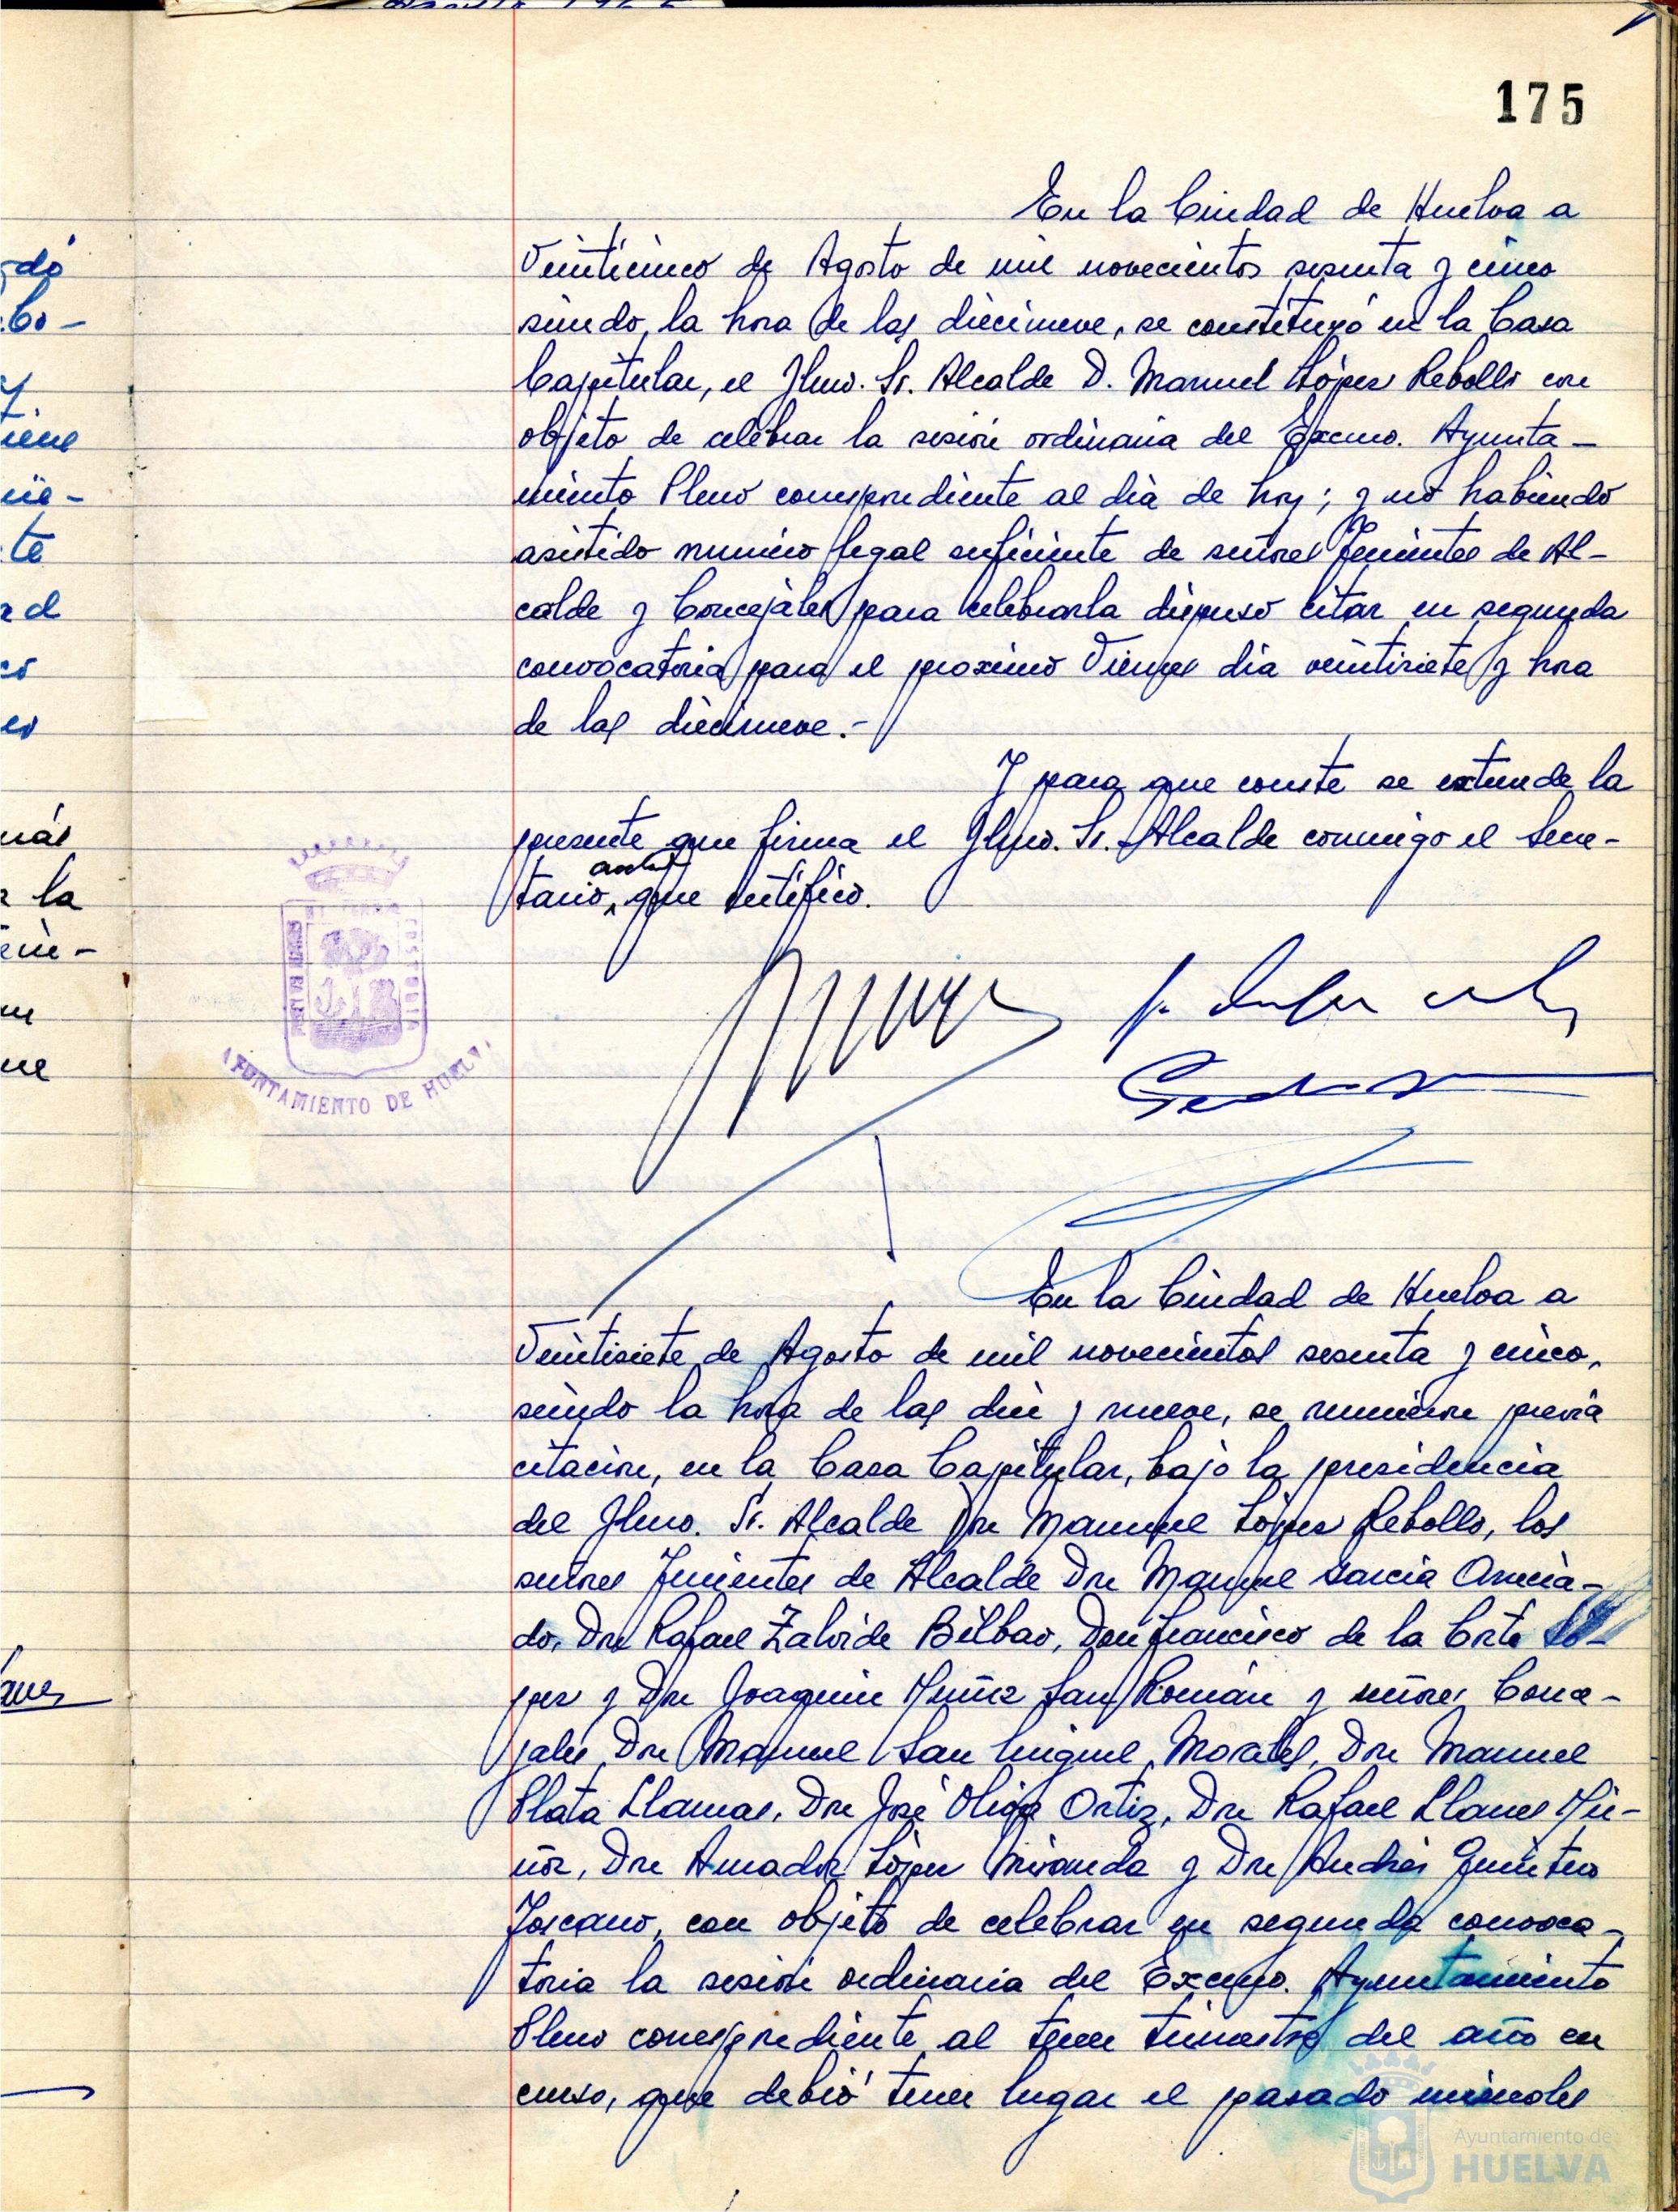 175
En la Ciudad de Huelva a
Veinticinco de Agosto de mil novecientos sesenta y cinco
siendo la hora de las diecinueve, se constituyó en la Casa
Capitular, el Ilmo. Sr. Alcalde D. Manuel López Rebollo con
objeto de celebrar la sesión ordinaria del Excmo. Ayunta-
miento Pleno correspondiente al dia de hoy; y no habiendo
asistido numero legal suficiente de señores Tenientes de Al-
calde y Concejales para celebrarla dispuso citar en segunda
convocatoria para el proximo Viernes dia veintisiete y hora
de las diecinueve.-
Y para que conste se extiende la
presente que firma el Ilmo. Sr. Alcalde conmigo el Secre-
tario, que certifico.
AYUNTAMIENTO DE HUELVA
En la Ciudad de Huelva a
Veintisiete de Agosto de mil novecientos sesenta y cinco,
siendo la hora de las diez y nueve, se reunieron previa
citación, en la Casa Capitular, bajo la presidencia
del Ilmo. Sr. Alcalde Don Manuel López Rebollo, los
señores Tenientes de Alcalde Don Manuel García
do, Don Rafael Zalvide Bilbao, Don Francisco de la Corte Ló-
pez y Don Joaquin Muñiz San Román y señores Conce-
jales Don Manuel San Miguel Morales, Don Manuel
Plata Llamas, Don José Oliva Ortiz, Don Rafael Llanes Mu-
ñoz, Don Amador López Miranda y Don Andrés Quintero
Toscano, con objeto de celebrar en segunda convoca-
toria la sesión ordinaria del Excmo. Ayuntamiento
Pleno correspondiente al tercer trimestre del año en
curso, que debió tener lugar el pasado miercoles
Ayuntamiento de
HUELVA